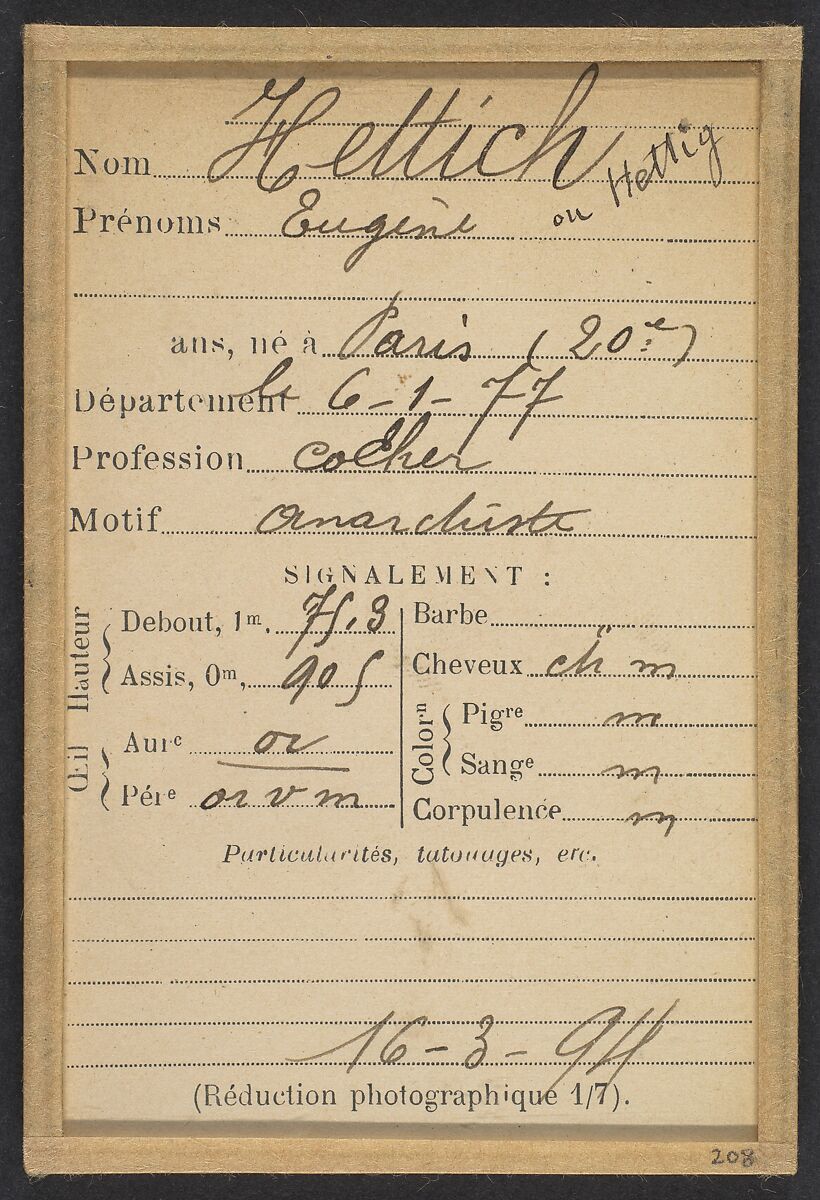 Nom Hettich
Prénoms Eugène ou Hettig
ans, né à Paris (20e)
Département le 6-1-77
Profession cocher
Motif anarchiste
SIGNALEMENT :
Hauteur
Debout, 1m, 75,3
Assis, 0m, 905
Œil
Aure or
Pére or v m
Barbe
Cheveux ch m
Colorn
Pigre m
Sange m
Corpulence m
Particularités, tatouages, etc.
16-3-94
(Réduction photographique 1/7).
208